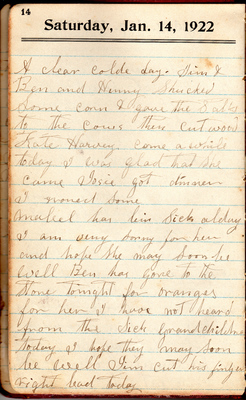 14
Saturday, Jan. 14, 1922
A clear colde day. Jim &
Ben and Henny Shucked
Some corn & gave the
to the cows then cut wood
Kate Harvey. Come a while
today I was glad that She
came Josie got dinner
I moned some
has bin Sick alday
I am very sorry for her
and hope She may Soon be
Well Ben has gone to the
Store tonight for oranges
for her I have not heard
from the Sick Grandchildren
today I hope they may soon
be well Jim cut his finger
right bad today